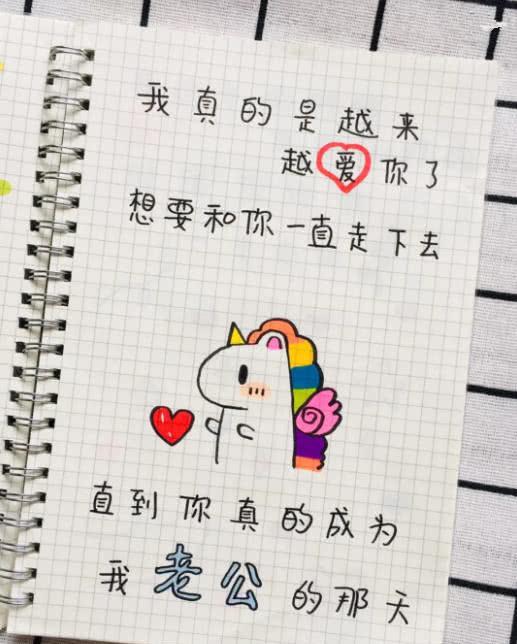 我真的是越来
越爱你了
想要和你一直走下去
直到你真的成为
我老公的那天